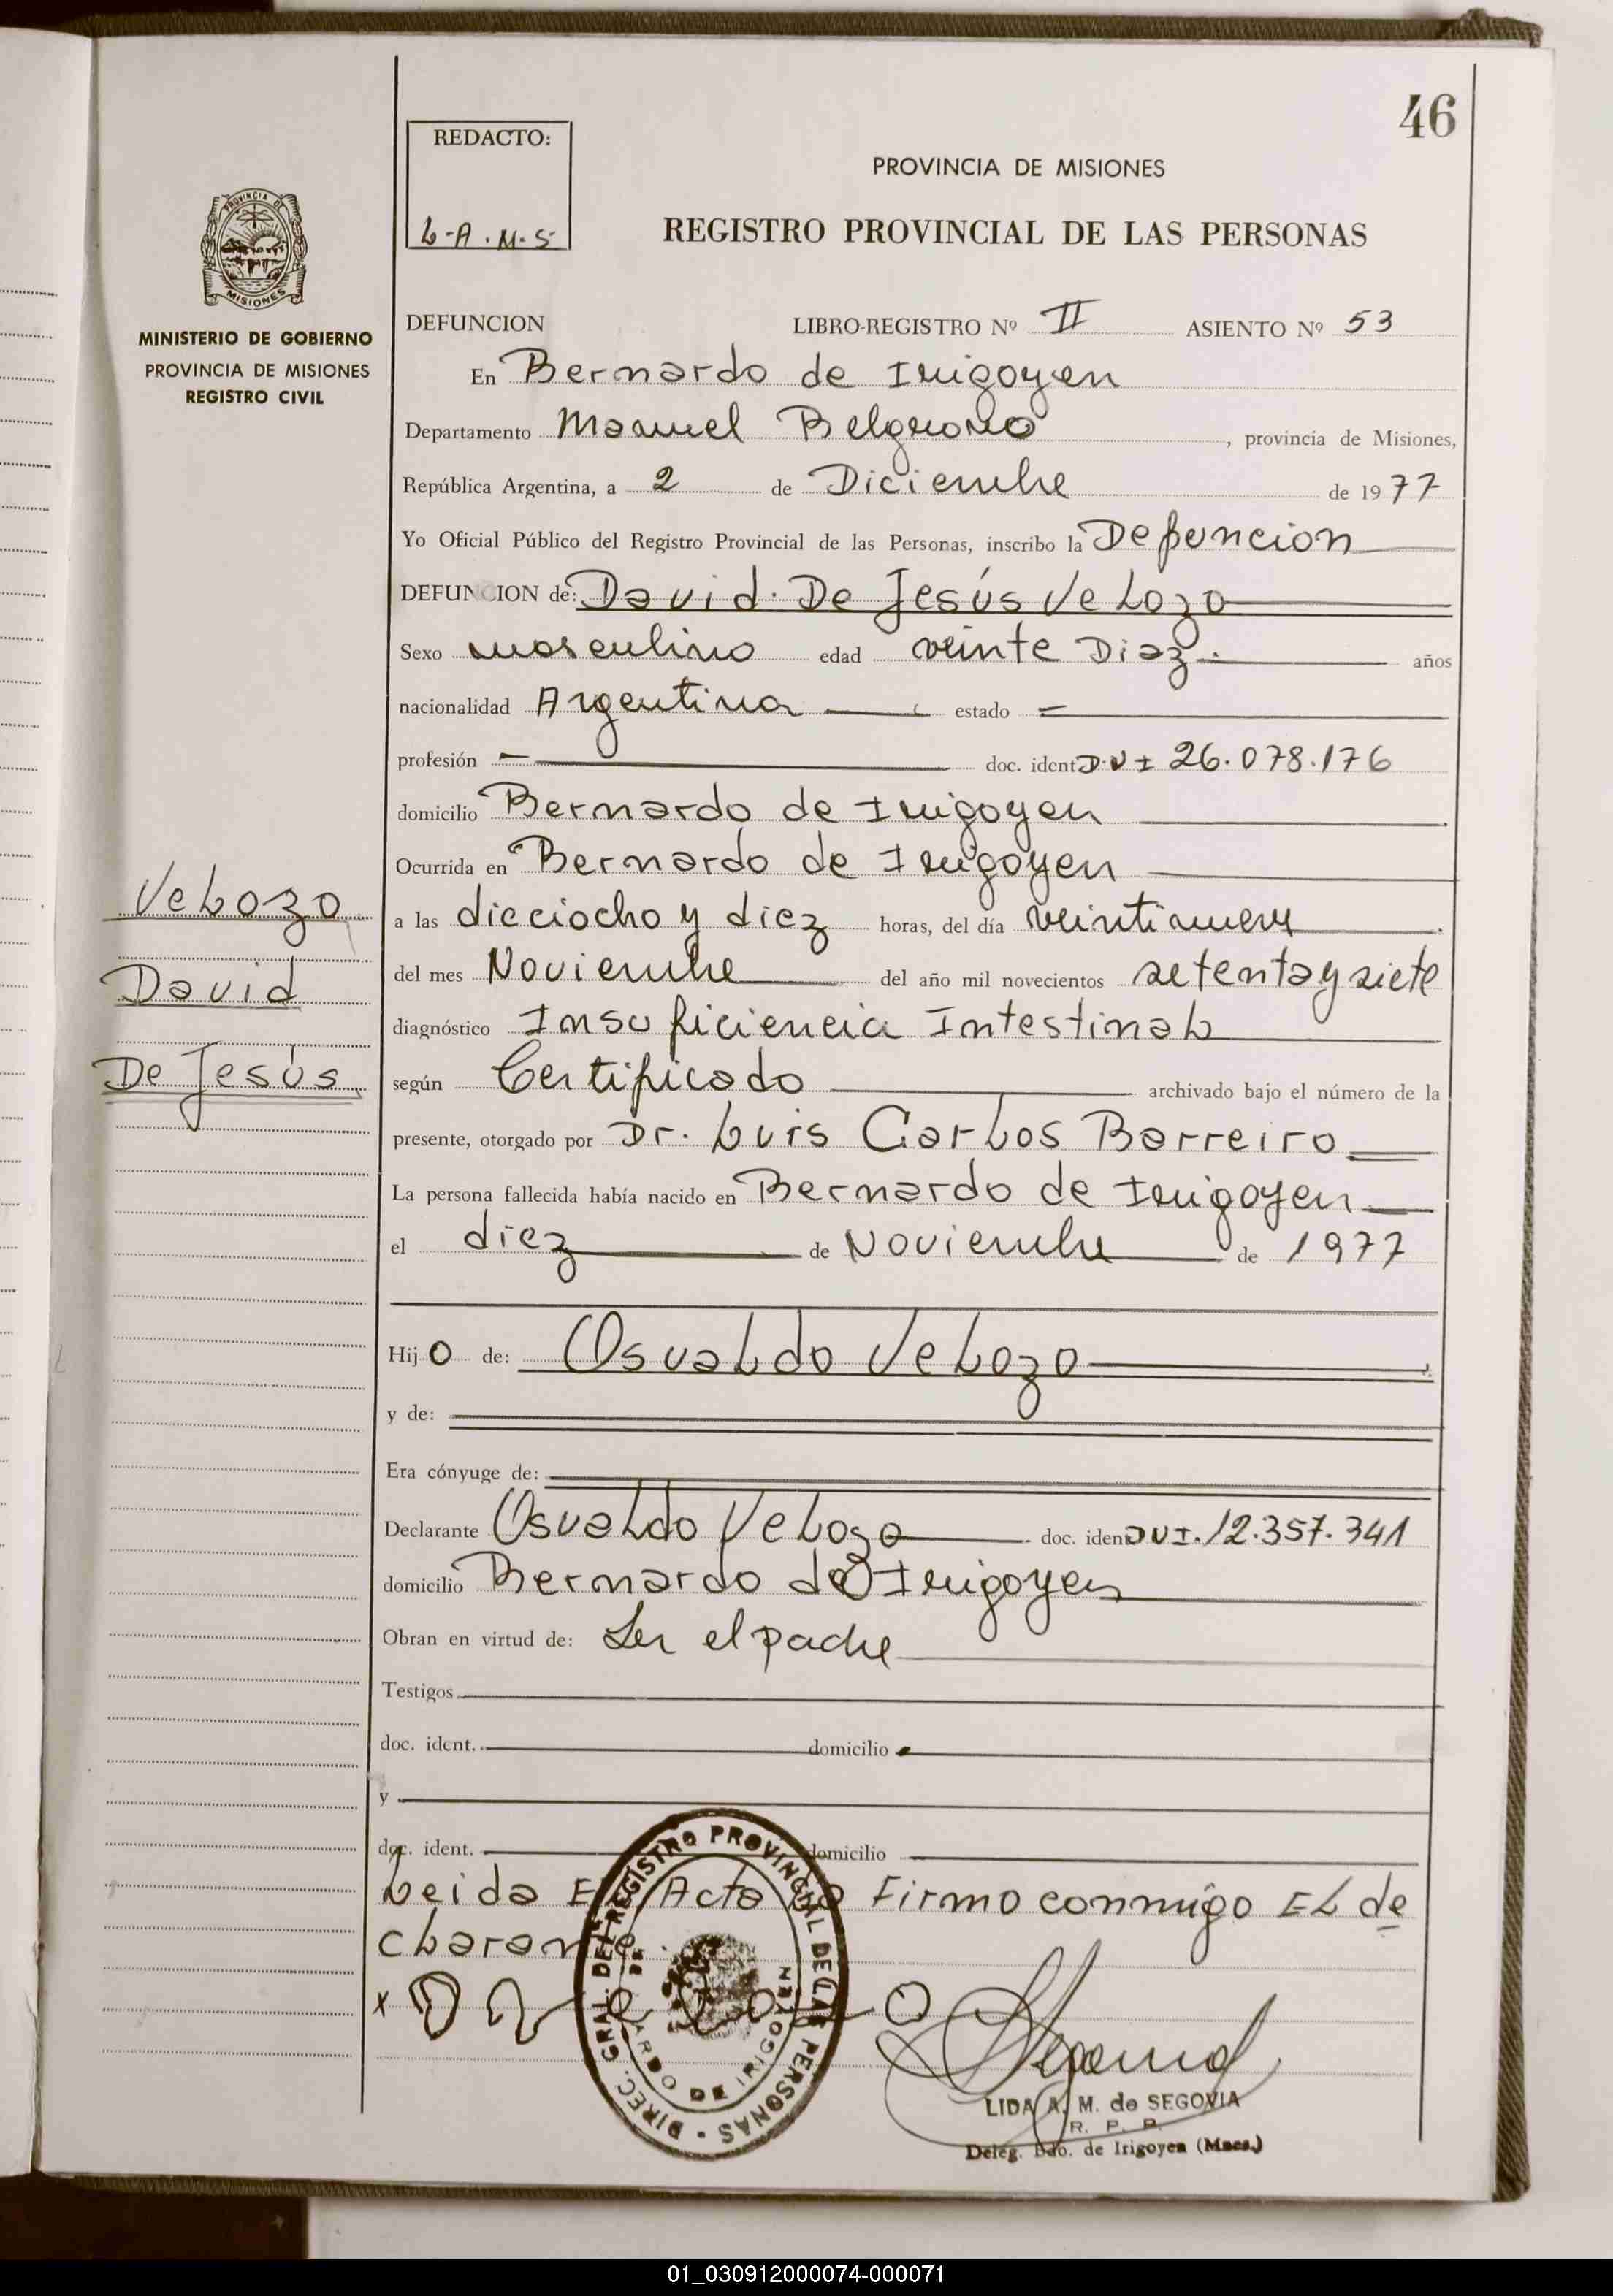 46
REDACTO:
L-A.M.S
PROVINCIA DE MISIONES
REGISTRO PROVINCIAL DE LAS PERSONAS
PROVINCIA DE
MISIONES
MINISTERIO DE GOBIERNO
PROVINCIA DE MISIONES
REGISTRO CIVIL
DEFUNCION LIBRO-REGISTRO Nº II ASIENTO Nº 53
En Bernardo de Irigoyen
Departamento Manuel Belgrano, provincia de Misiones,
República Argentina, a 2 de Diciembre de 1977
Yo Oficial Público del Registro Provincial de las Personas, inscribo la Defuncion
DEFUNCION de: David. De Jesús Velozo
Sexo masculino edad veinte Diaz. años
nacionalidad Argentina estado =
profesión — doc. ident D.N I 26.078.176
domicilio Bernardo de Irigoyen
Ocurrida en Bernardo de Irigoyen
a las dieciocho y diez horas, del día veintinueve
del mes Noviembre del año mil novecientos setenta y siete
diagnóstico Insuficiencia Intestinal
según Certificado archivado bajo el número de la
presente, otorgado por Dr. Luis Carlos Barreiro
La persona fallecida había nacido en Bernardo de Irigoyen
el diez de Noviembre de 1977
Velozo
David
De Jesús
Hijo de: Osvaldo Velozo
y de:
Era cónyuge de:
Declarante Osvaldo Velozo doc. iden DNI. 12.357.341
domicilio Bernardo de Irigoyen
Obran en virtud de: Ser el padre
Testigos
doc. ident. domicilio
y
doc. ident. domicilio
Leida El Acta Firmo conmigo EL de
clarante.
DIREC. GRAL. DEL REGISTRO PROVINCIAL DE LAS PERSONAS
BERNARDO DE IRIGOYEN
LIDA A. M. de SEGOVIA
R. P. P.
Deleg. Bdo. de Irigoyen (Mnes.)
01_030912000074-000071